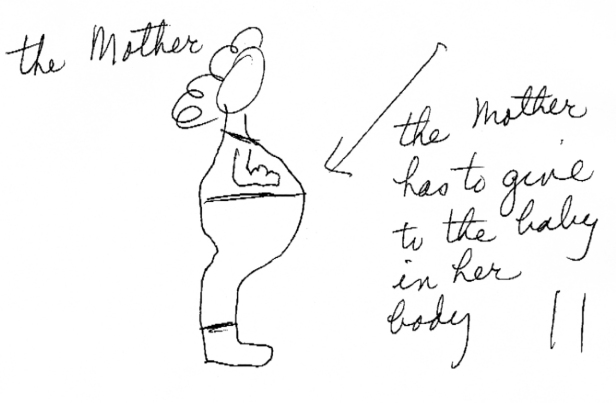 the Mother
the Mother
has to give
to the baby
in her
body